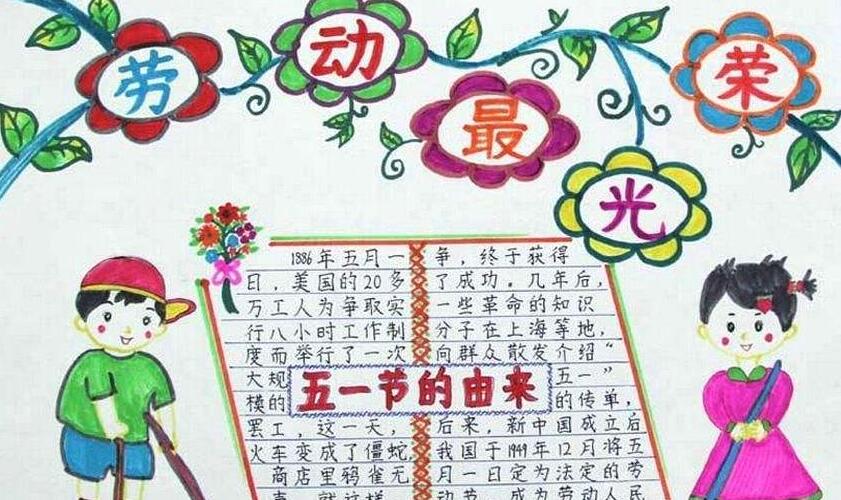 劳动最光荣
五一节的由来
1886年五月一
日,美国的20多
万工人为争取实
行八小时工作制
度而举行了一次
大规
模的
罢工,这一天,
火车变成了僵蛇,
商店里鸦雀无
就这样
争,终于获得
了成功。几年后,
一些革命的知识
分子在上海等地,
向群众散发介绍“
五一”
的传单,
后来,新中国成立后
我国于1949年12月将五
月一日定为法定的劳
动节,成为劳动人民